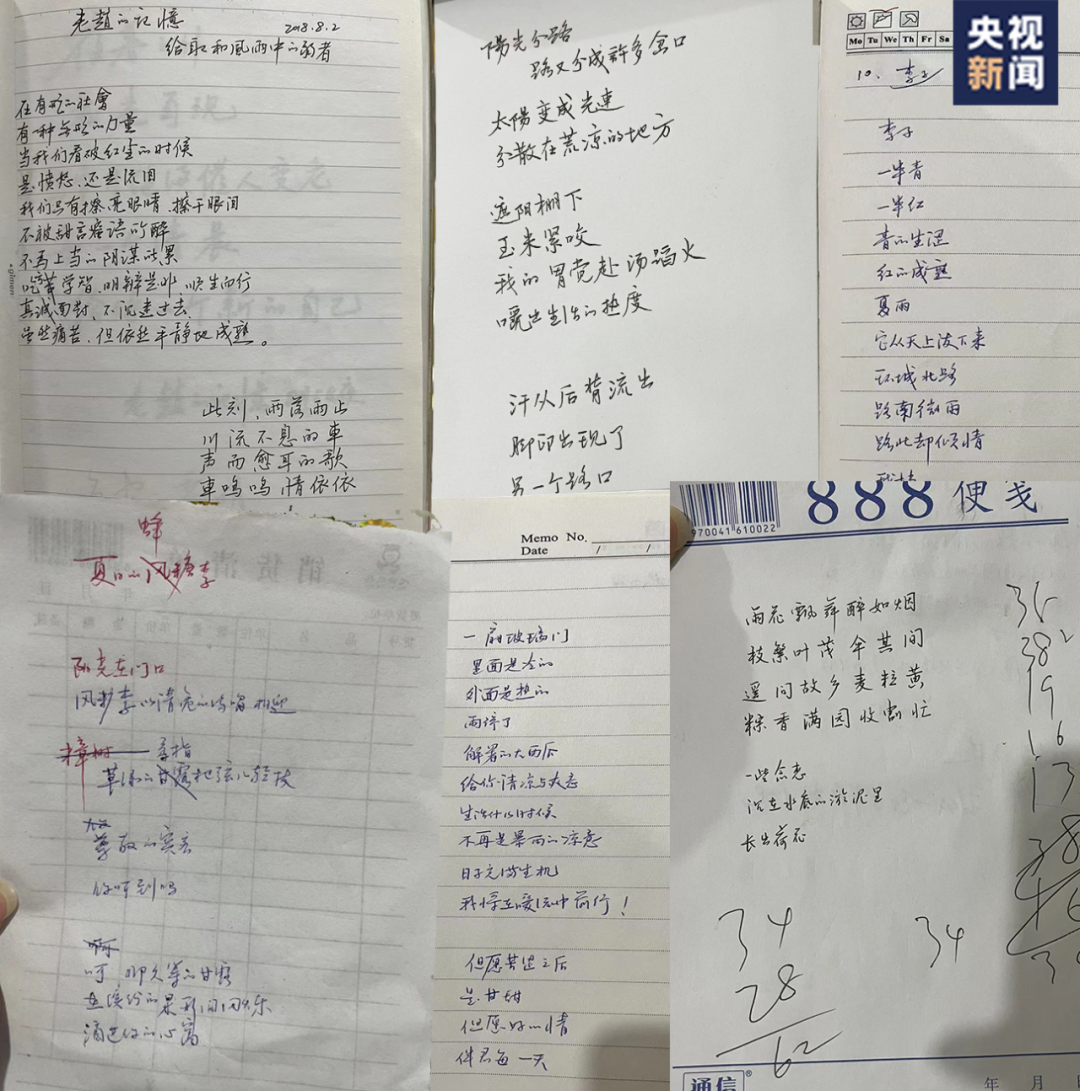 央视
新闻
老趙的记憶
2018.8.2
给最和風雨中的弱者
在有形的社會
有一种无形的力量
当我们看破红尘的时候
是愤怒、还是流泪
我们只有擦亮眼睛、擦干眼泪
不被甜言蜜语所醉
不再上当的阴谋所累
吃堑学智、明辩是非、顺生而行
真诚面对、不沉迷过去、
虽然痛苦、但依然平静地成熟。
此刻、雨落雨止
川流不息的車
声而愈耳的歌
車呜呜,情依依
陽光分路
路又分成許多岔口
太陽变成光速
分散在荒凉的地方
遮阳棚下
玉米紧咬
我的胃党赴汤蹈火
嚼出生活的热度
汗从后背流出
脚印出现了
另一个路口
Mo Tu We Th Fr Sa
10、李子
李子
一半青
一半红
青的生涩
红的成熟
夏雨
它从天上泼下来
环城北路
路南微雨
路北却倾情
蜂
夏日的风糖李
阳光在门口
相迎
樟树
尊敬的宾客
你听到吗
啊
滴进你的心窝
Memo No.
Date / /
一扇玻璃门
里面是冷的
外面是热的
雨停了
解暑的大西瓜
给你清凉与惬意
生活什么时候
不再是暴雨的凉意
日子充满生机
我愿在暖流中前行！
但愿苦涩之后
是甘甜
但愿好心情
伴君每一天
970041 610022
888便笺
雨花飘舞醉如烟
枝繁叶茂伞其间
遥问故乡麦粒黄
粽香满园收割忙
一些念想
沉在水底的淤泥里
长出荷花
36
382
19
16
13
34
28
62
34
通信
年 月